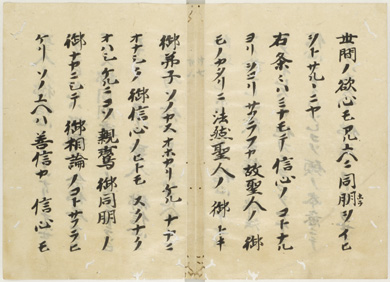 世間ノ欲心モアルユヘニ同朋ヲイヒ
ヲトサルヽニヤ
右条々ハミナモテ信心ノコトナル
ヨリヲコリサフラフカ故聖人ノ御
モノカタリニ法然聖人ノ御トキ
御弟子ソノカスオホカリケルナカニ
オナシク御信心ノヒトモスクナク
オハシケルニコソ親鸞御同朋ノ
御ナカニシテ御相論ノコトサフラヒ
ケリソノユヘハ善信カ信心モ